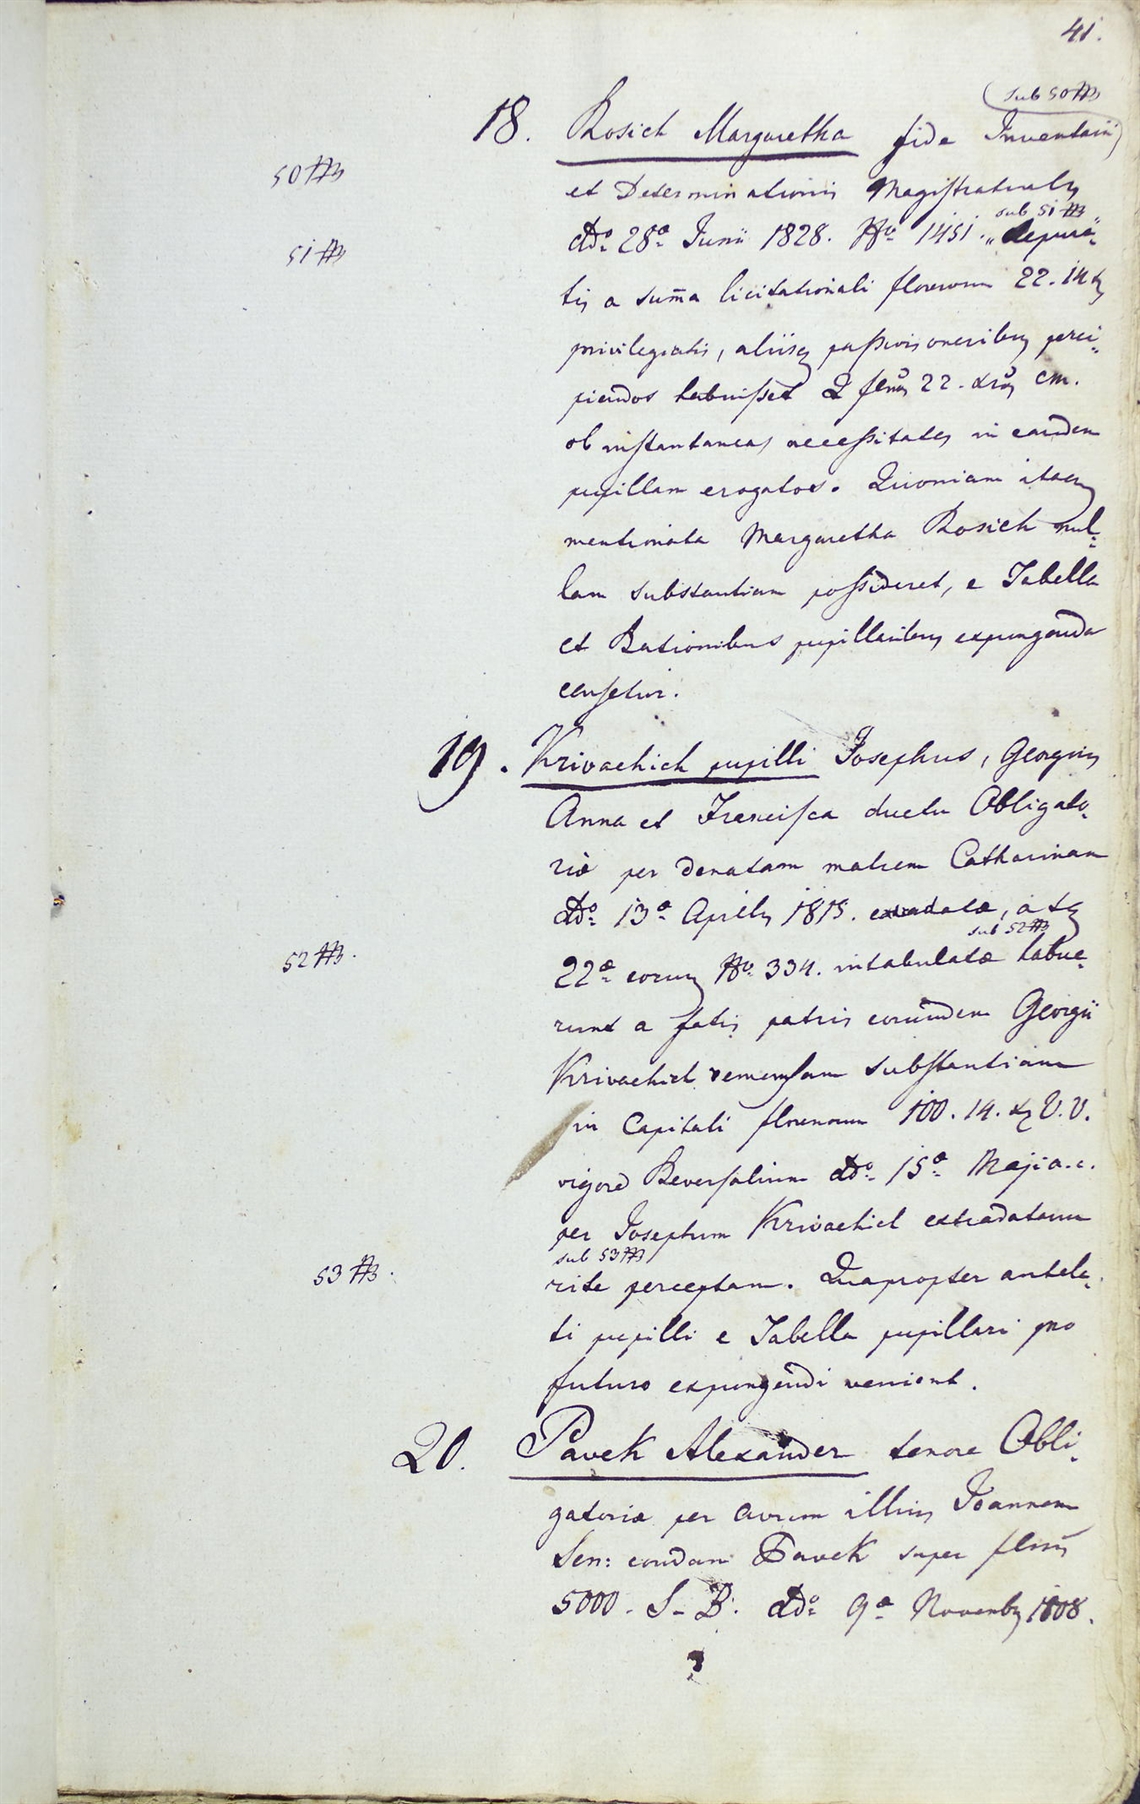 41.
sub 50 #
18. Rosich Margaretha fide Inventarii
50 #
et Determinationis Magistratualis
sub 51 #
51 #
ddo 28a Junii 1828. No 1451. depura-
tis a summa licitationali florenorum 22. 14 x
privilegiatis, aliisq passivis oneribus perci-
piendos habuisset 2 flnos 22. xros CM.
ob instantaneas necessitates in eandem
pupillam erogatos. Quoniam itaq
mentionata Margaretha Rosich nul-
lam substantiam possideret, e Tabella
et Rationibus pupillaribus expungenda
censetur.
19. Krivachich pupilli Josephus, Georgius
Anna et Francisca ductu Obligato-
riae per denatam matrem Catharinam
ddo 13a Aprilis 1815. extradatae, a
sub 52 #
52 #.
22a eorum No 334. intabulatae habue-
runt a fatis patris eorundem Georgii
Krivachich remensam substantiam
in Capitali florenorum 100. 14. x V.V.
vigore Reversalium ddo 15a Maji a.c.
per Josephum Krivachich extradatarum
sub 53 #
53 #.
rite perceptam. Quapropter antela-
ti pupilli e Tabella pupillari pro
futuro expungendi venient.
20. Pavek Alexander tenore Obli-
gatoriae per avum illius Joannem
Sen: condam Pavek super flnis
5000. S-B. ddo 9a Novembris 1808.